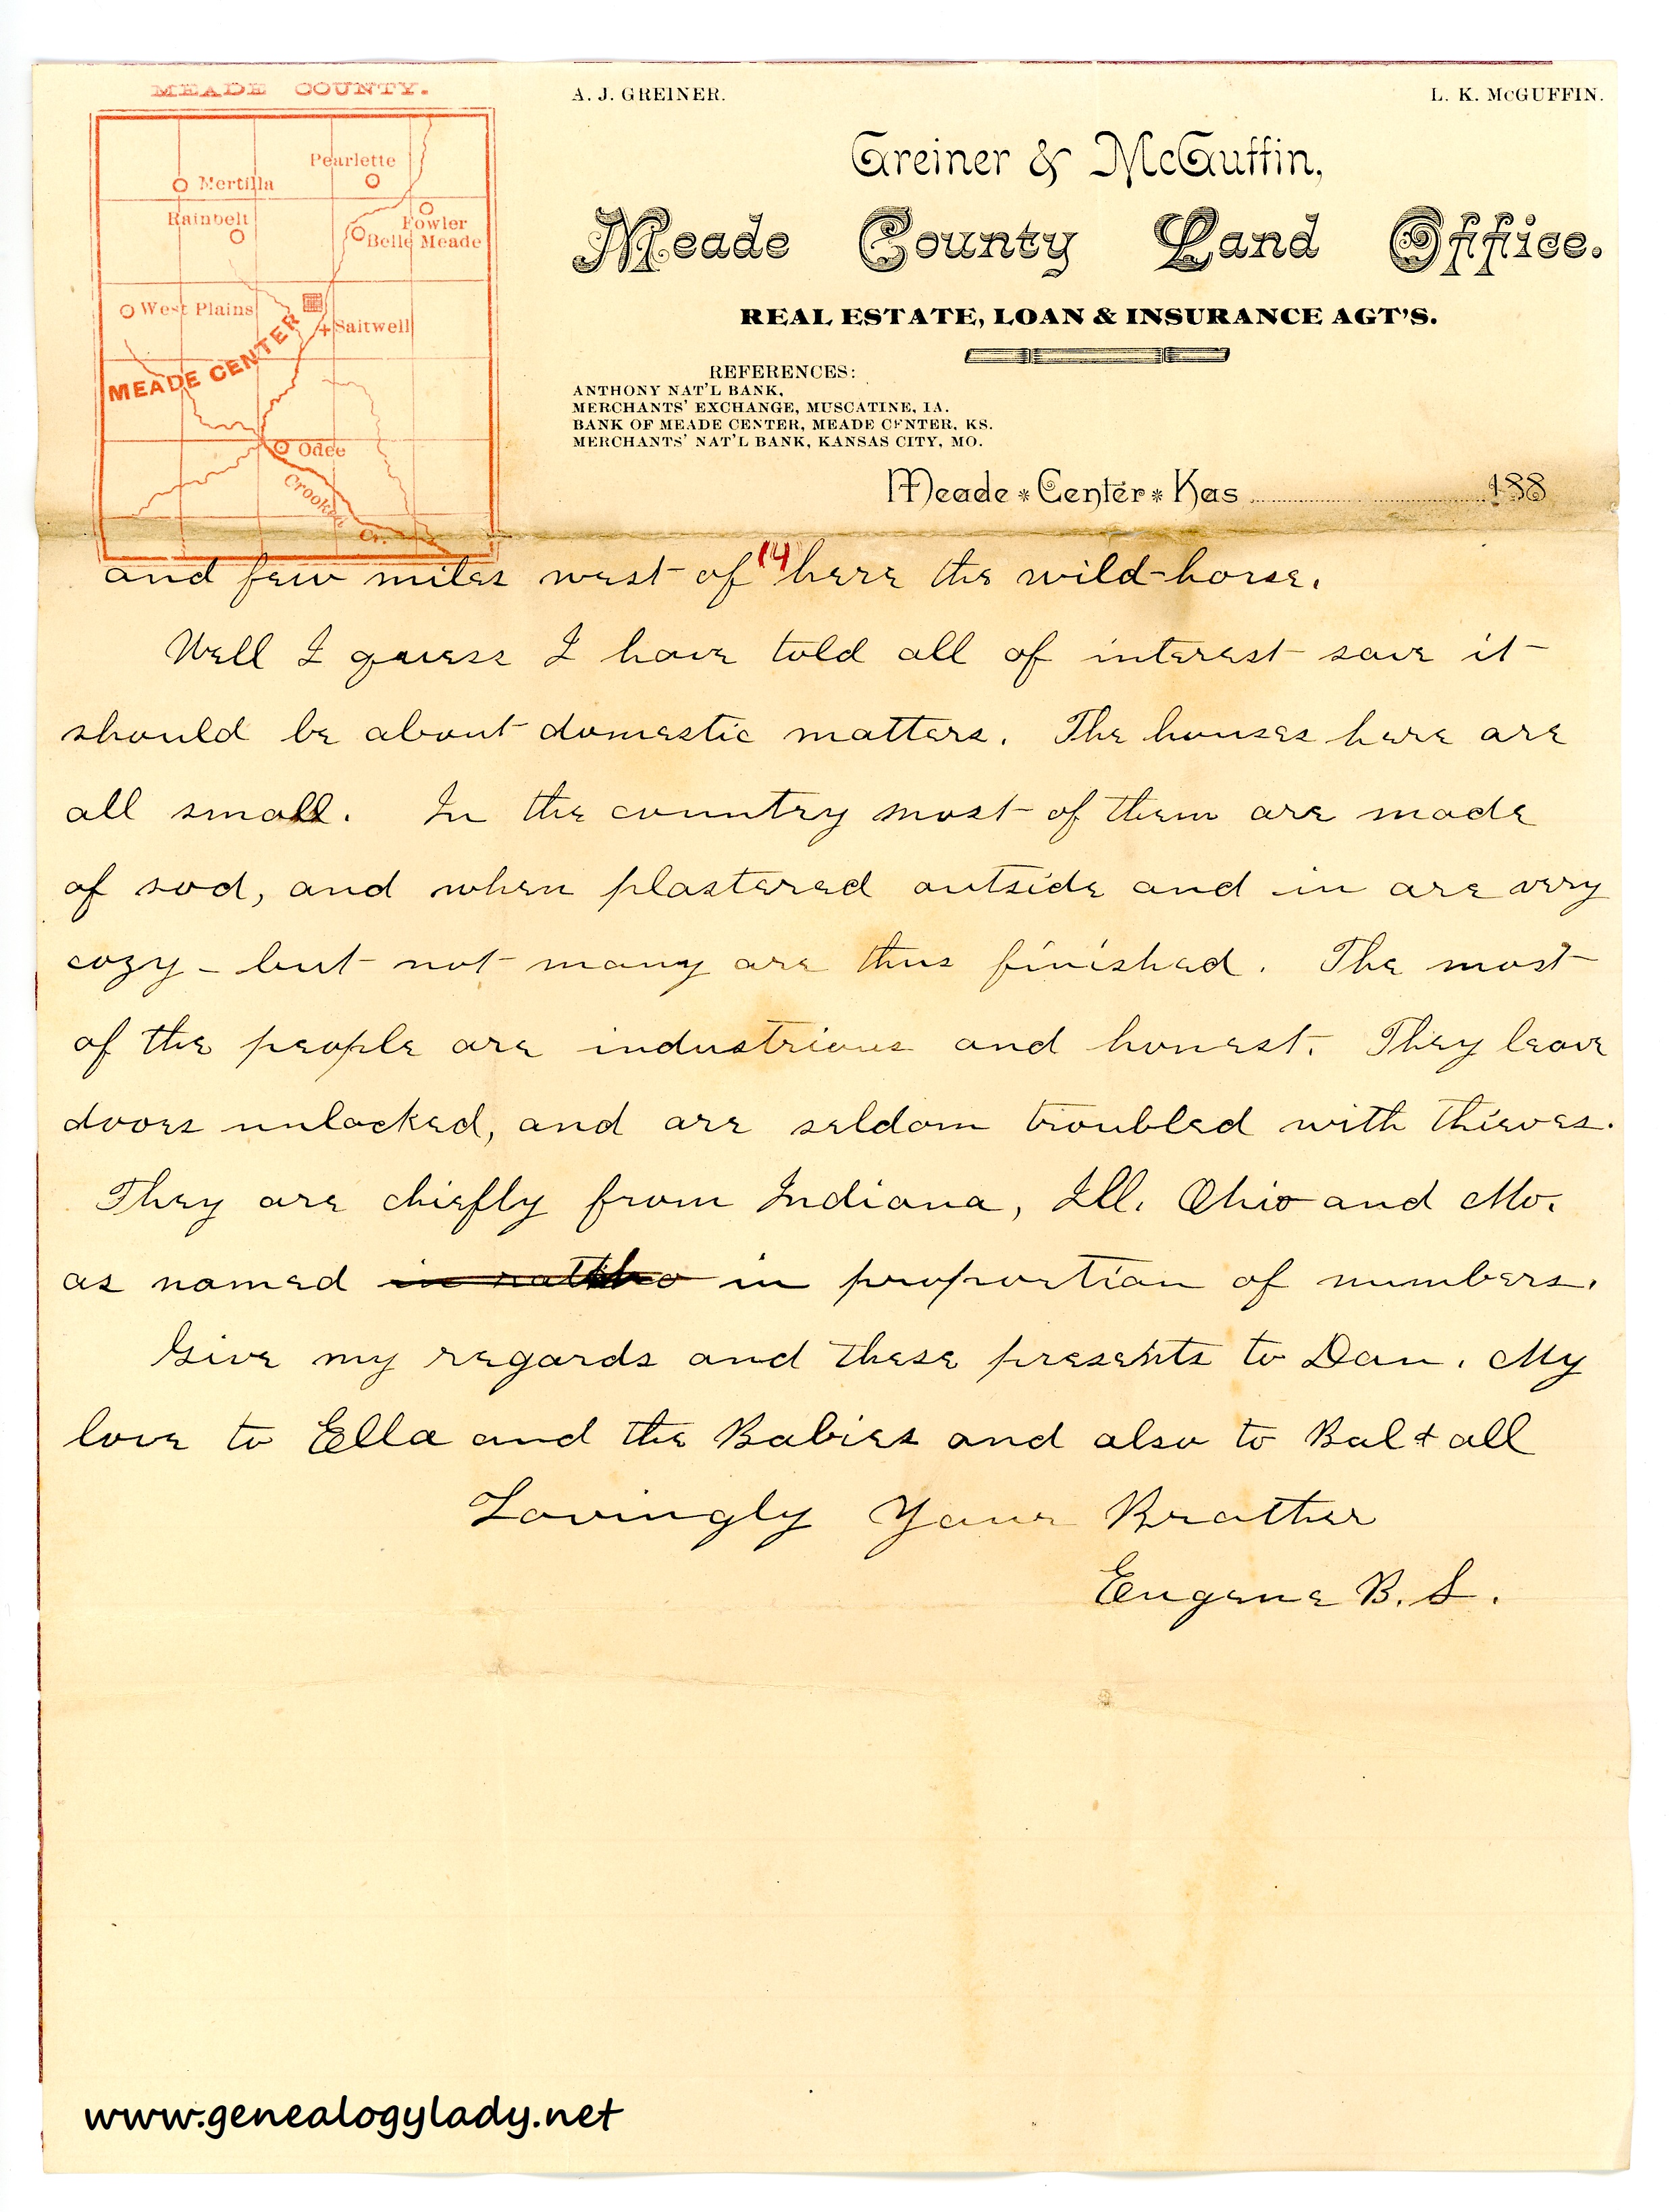 MEADE COUNTY.
Pearlette
Mertilla
Rainbelt
Fowler
Belle Meade
West Plains
Saltwell
MEADE CENTER
Odee
Crooked
Cr.
A. J. GREINER.
L. K. McGUFFIN.
Greiner & McGuffin,
Meade County Land Office.
REAL ESTATE, LOAN & INSURANCE AGT'S.
REFERENCES:
ANTHONY NAT'L BANK,
MERCHANTS' EXCHANGE, MUSCATINE, IA.
BANK OF MEADE CENTER, MEADE CENTER, KS.
MERCHANTS' NAT'L BANK, KANSAS CITY, MO.
Meade * Center * Kas ........................ 188
(4)
and few miles west of here the wild-horse.
Well I guess I have told all of interest save it
should be about domestic matters. The houses here are
all small. In the country most of them are made
of sod, and when plastered outside and in are very
cozy - but not many are thus finished. The most
of the people are industrious and honest. They leave
doors unlocked, and are seldom troubled with thieves.
They are chiefly from Indiana, Ill. Ohio and Mo.
as named in proportion of numbers.
Give my regards and these presents to Dan. My
love to Ella and the Babies and also to Bal & all
Lovingly Your Brother
Eugene B. S.
www.genealogylady.net